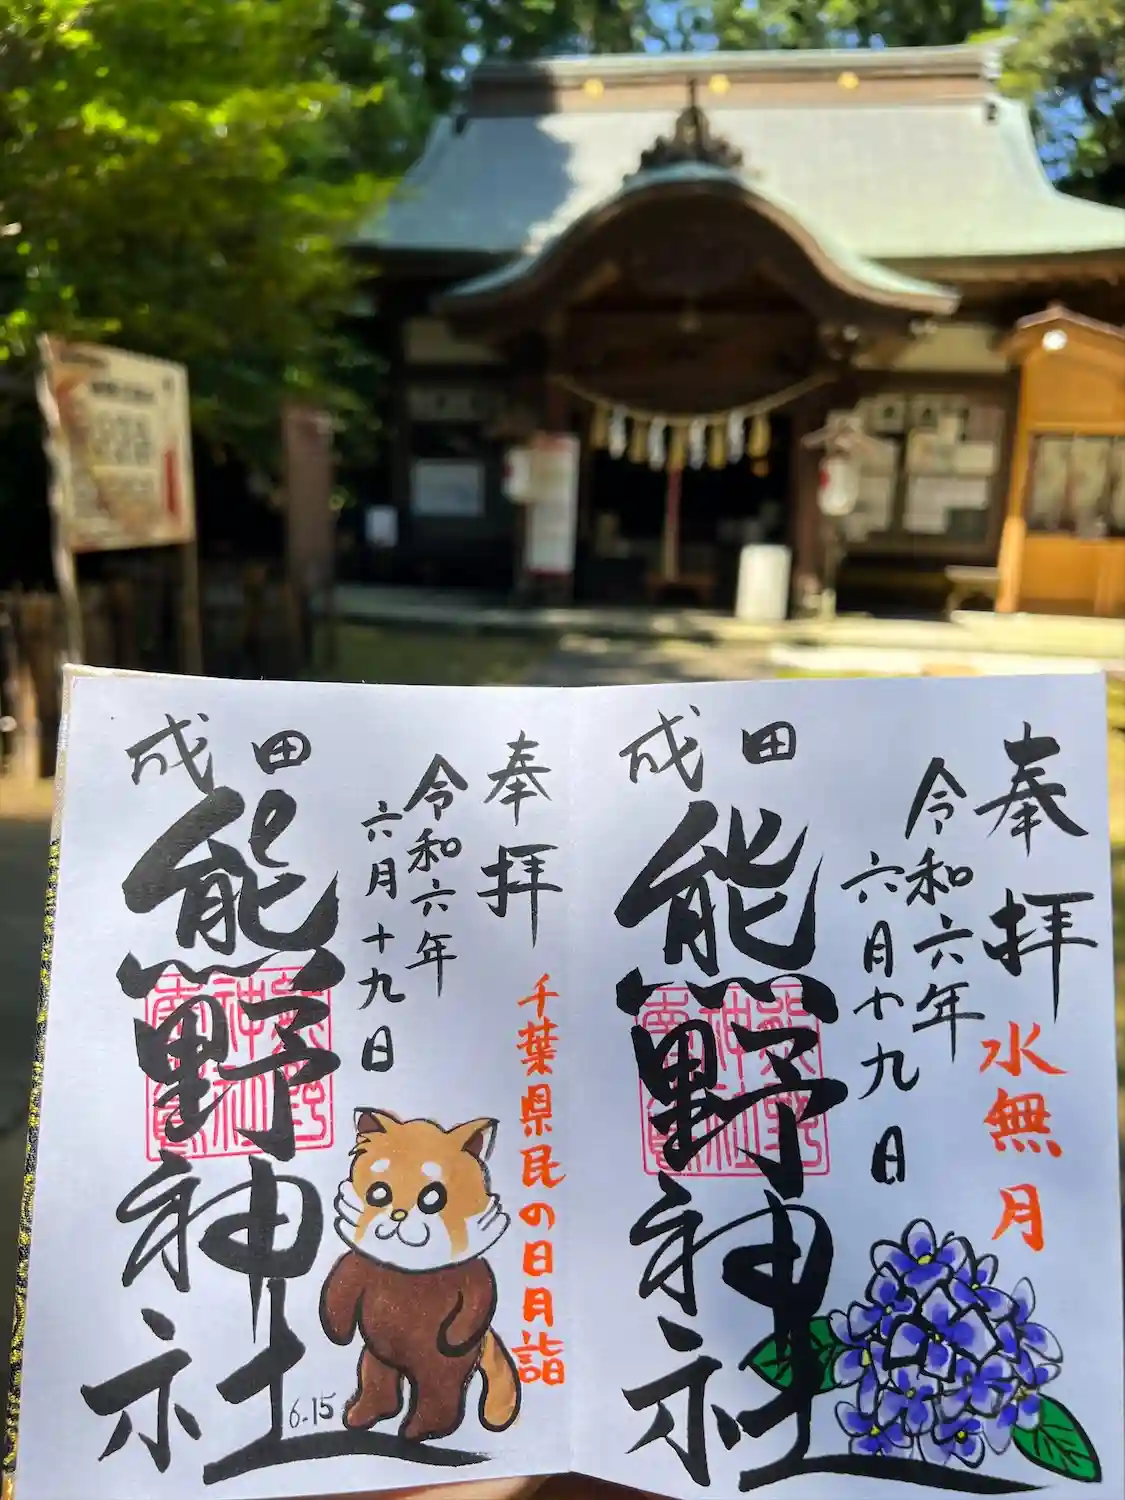 奉拝
水無月
令和六年
六月十九日
成田
熊野神社
奉拝
千葉県民の日月詣
令和六年
六月十九日
成田
熊野神社
6.15